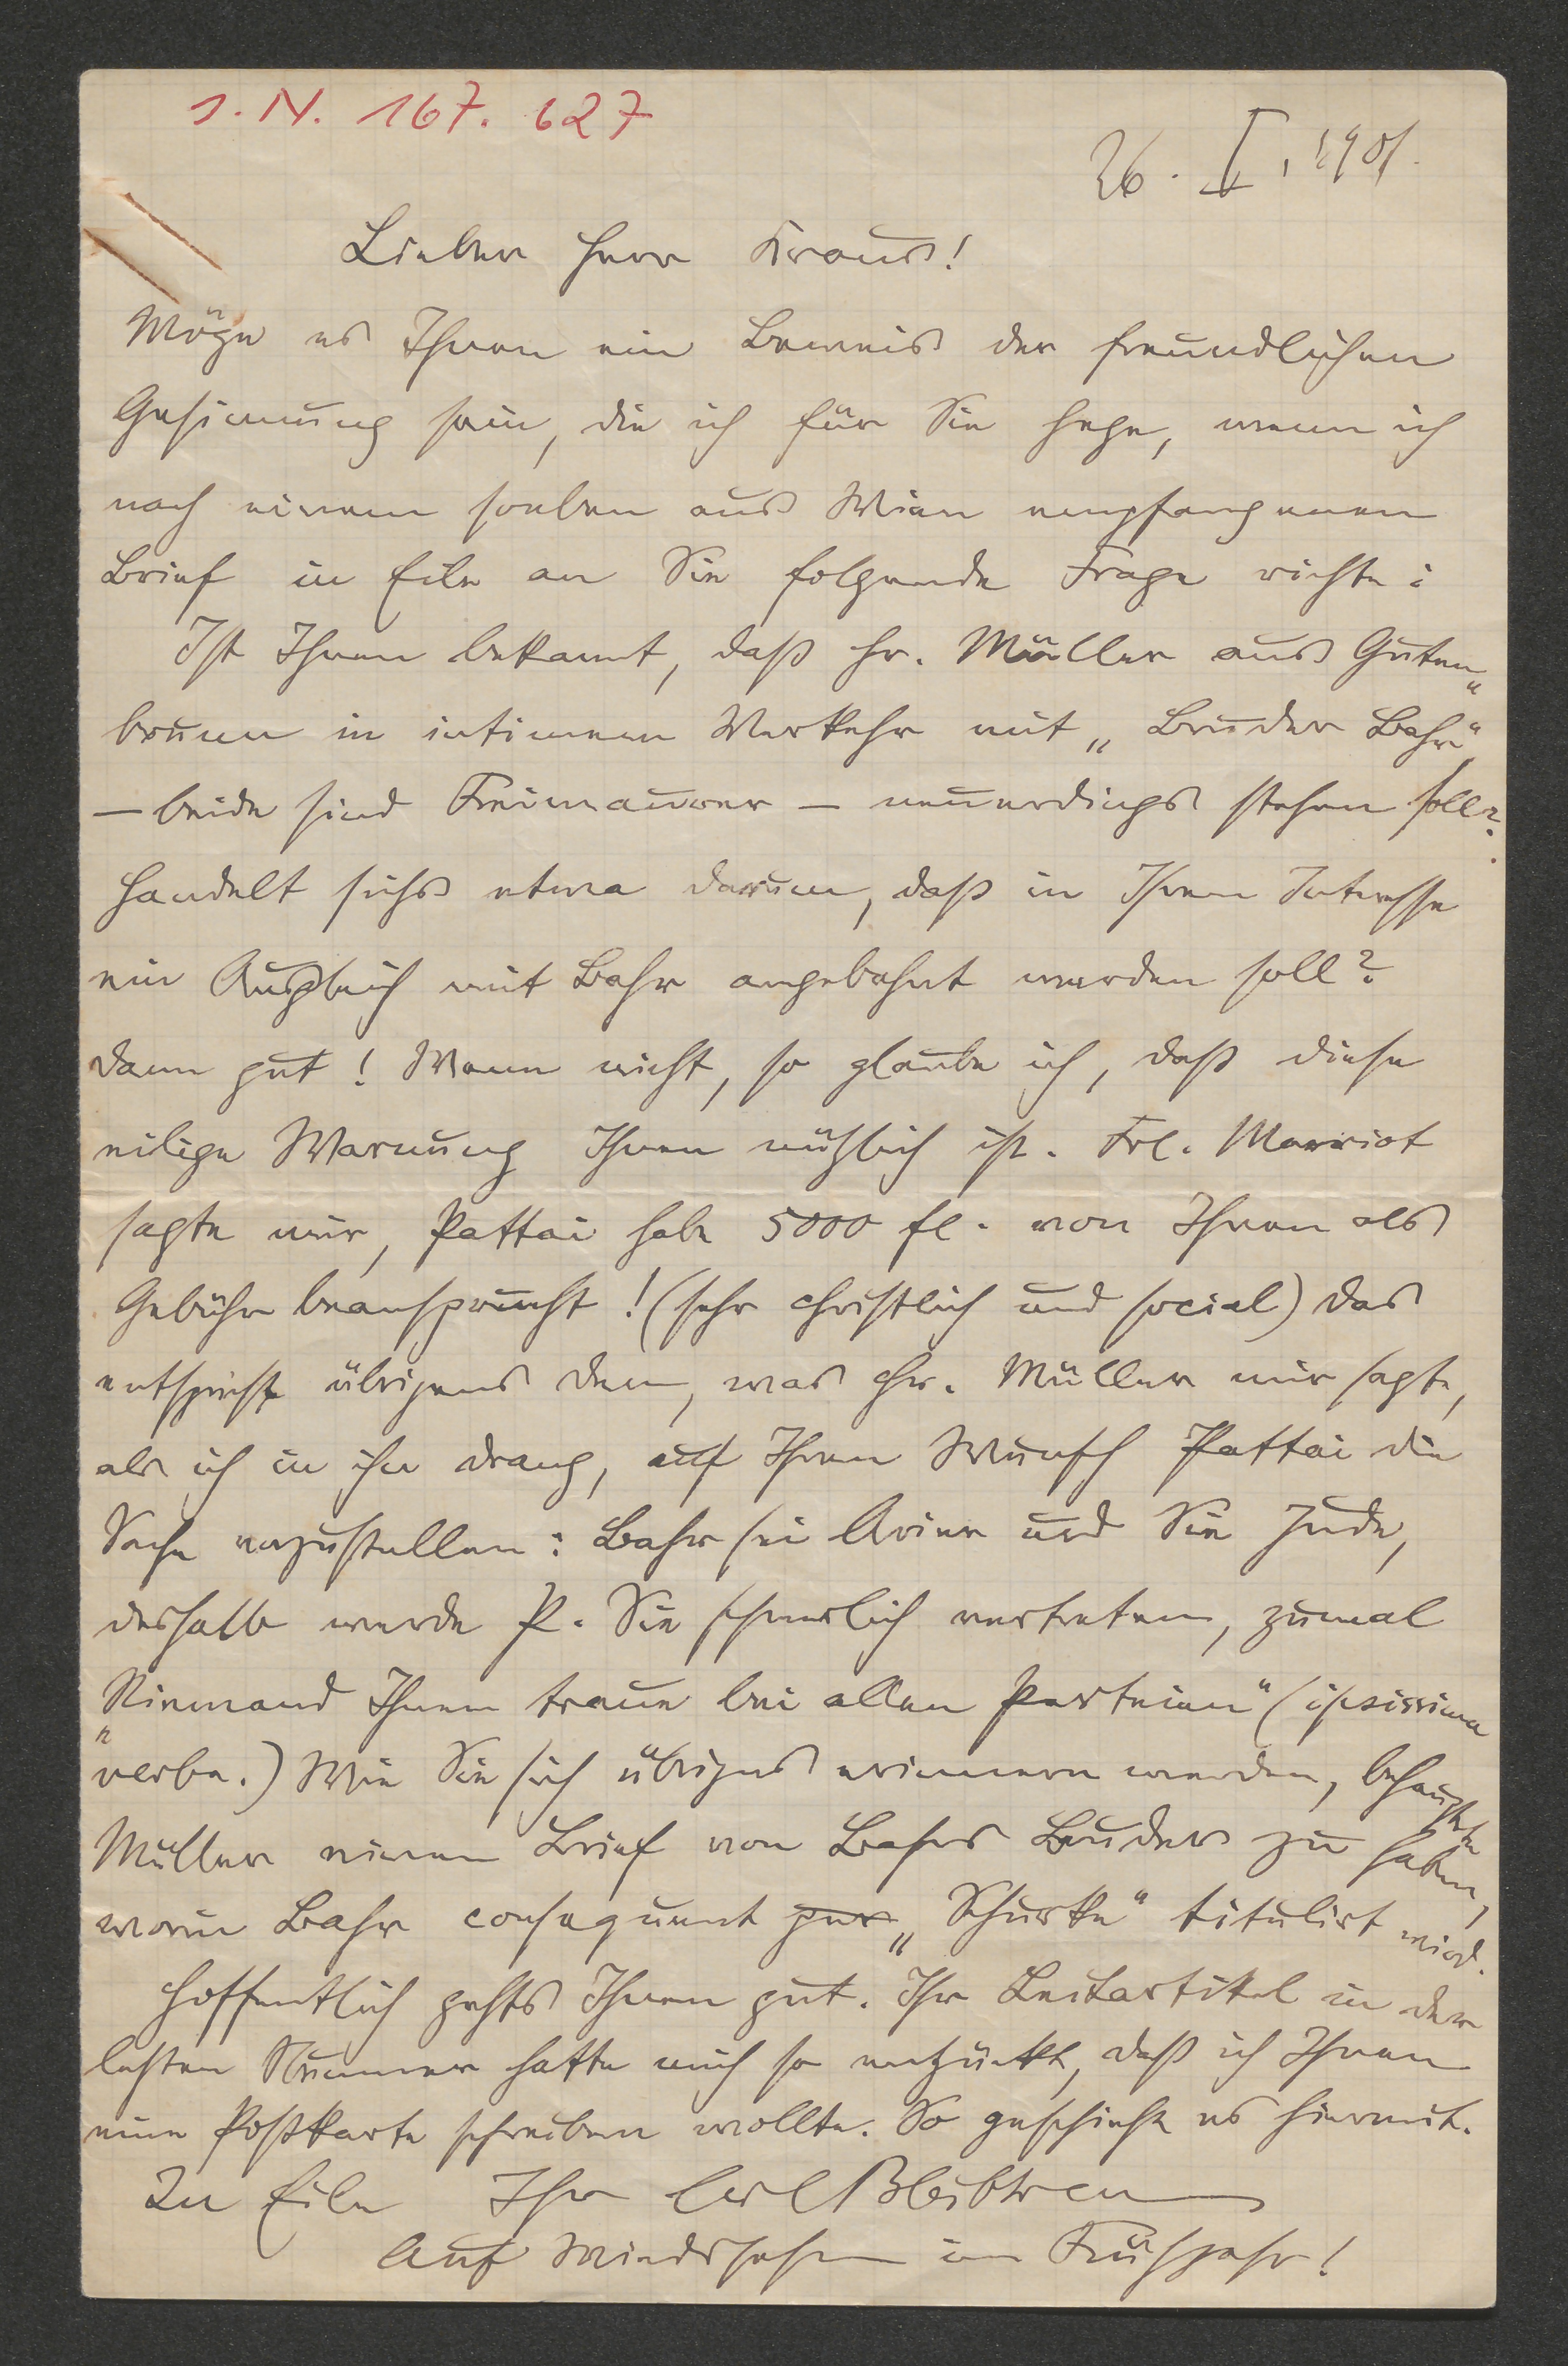 J. N. 167.627
26. I. 1901.
Lieber Herr Kraus!
Möge es Ihnen ein Beweis der freundlichen
Gesinnung sein, die ich für Sie hege, wenn ich
nach einem soeben aus Wien empfangenen
Brief in Eile an Sie folgende Frage richte:
Ist Ihnen bekannt, daß Hr. Müller aus Guten„
brunn in intimem Verkehr mit „Bruder Bahr“
– beide sind Freimaurer – neuerdings stehen soll?
Handelt sichs etwa darum, daß in Ihrem Interesse
ein Ausgleich mit Bahr angebahnt werden soll?
Dann gut! Wenn nicht, so glaube ich, daß diese
eilige Warnung Ihnen nützlich ist. Frl. Marriot
sagte mir, Pattai habe 5000 fl. von Ihnen als
Gebühr beansprucht! (sehr christlich und social) Das
entspricht übrigens dem, was Hr. Müller mir sagte,
als ich in ihn drang, auf Ihren Wunsch Pattai die
Sache vorzustellen: Bahr sei Arier und Sie Jude,
deshalb werde P. Sie schwerlich vertreten, zumal
„Niemand Ihnen traue bei allen Parteien“ (ipsissima
verba.) Wie Sie sich übrigens erinnern werden, behauptete
Müller einen Brief von Bahrs Bruder zu haben,
worin Bahr consequent per „Schurke“ titulirt wird.
Hoffentlich gehts Ihnen gut. Ihr Leitartikel in der
letzten Nummer hatte mich so entzückt, daß ich Ihnen
eine Postkarte schreiben wollte. So geschieht es hiermit.
In Eile Ihr Carl Bleibtreu
Auf Wiedersehen im Frühjahr!